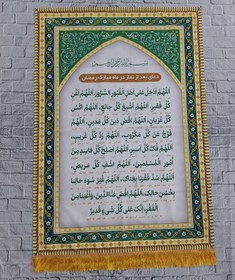 بسم الله الرحمن الرحیم
دعای بعد از نماز در ماه مبارک رمضان
اَللّهُمَّ اَدْخِلْ عَلی اَهْلِ الْقُبُورِ السُّرُورَ، اَللّهُمَّ اَغْنِ
کُلَّ فَقیرٍ، اَللّهُمَّ اَشْبِعْ کُلَّ جائِعٍ، اَللّهُمَّ اکْسُ
کُلَّ عُرْیانٍ، اَللّهُمَّ اقْضِ دَیْنَ کُلِّ مَدینٍ، اَللّهُمَّ
فَرِّجْ عَنْ کُلِّ مَکْرُوبٍ، اَللّهُمَّ رُدَّ کُلَّ غَریبٍ،
اَللّهُمَّ فُکَّ کُلَّ اَسیرٍ، اَللّهُمَّ اَصْلِحْ کُلَّ فاسِدٍ مِنْ
اُمُورِ الْمُسْلِمینَ، اَللّهُمَّ اشْفِ کُلَّ مَریضٍ،
اَللّهُمَّ سُدَّ فَقْرَنا بِغِناکَ، اَللّهُمَّ غَیِّرْ سُوءَ حالِنا
بِحُسْنِ حالِکَ، اَللّهُمَّ اقْضِ عَنَّا الدَّیْنَ، وَاَغْنِنا مِنَ
الْفَقْرِ، اِنَّکَ عَلی کُلِّ شَیْءٍ قَدیرٌ